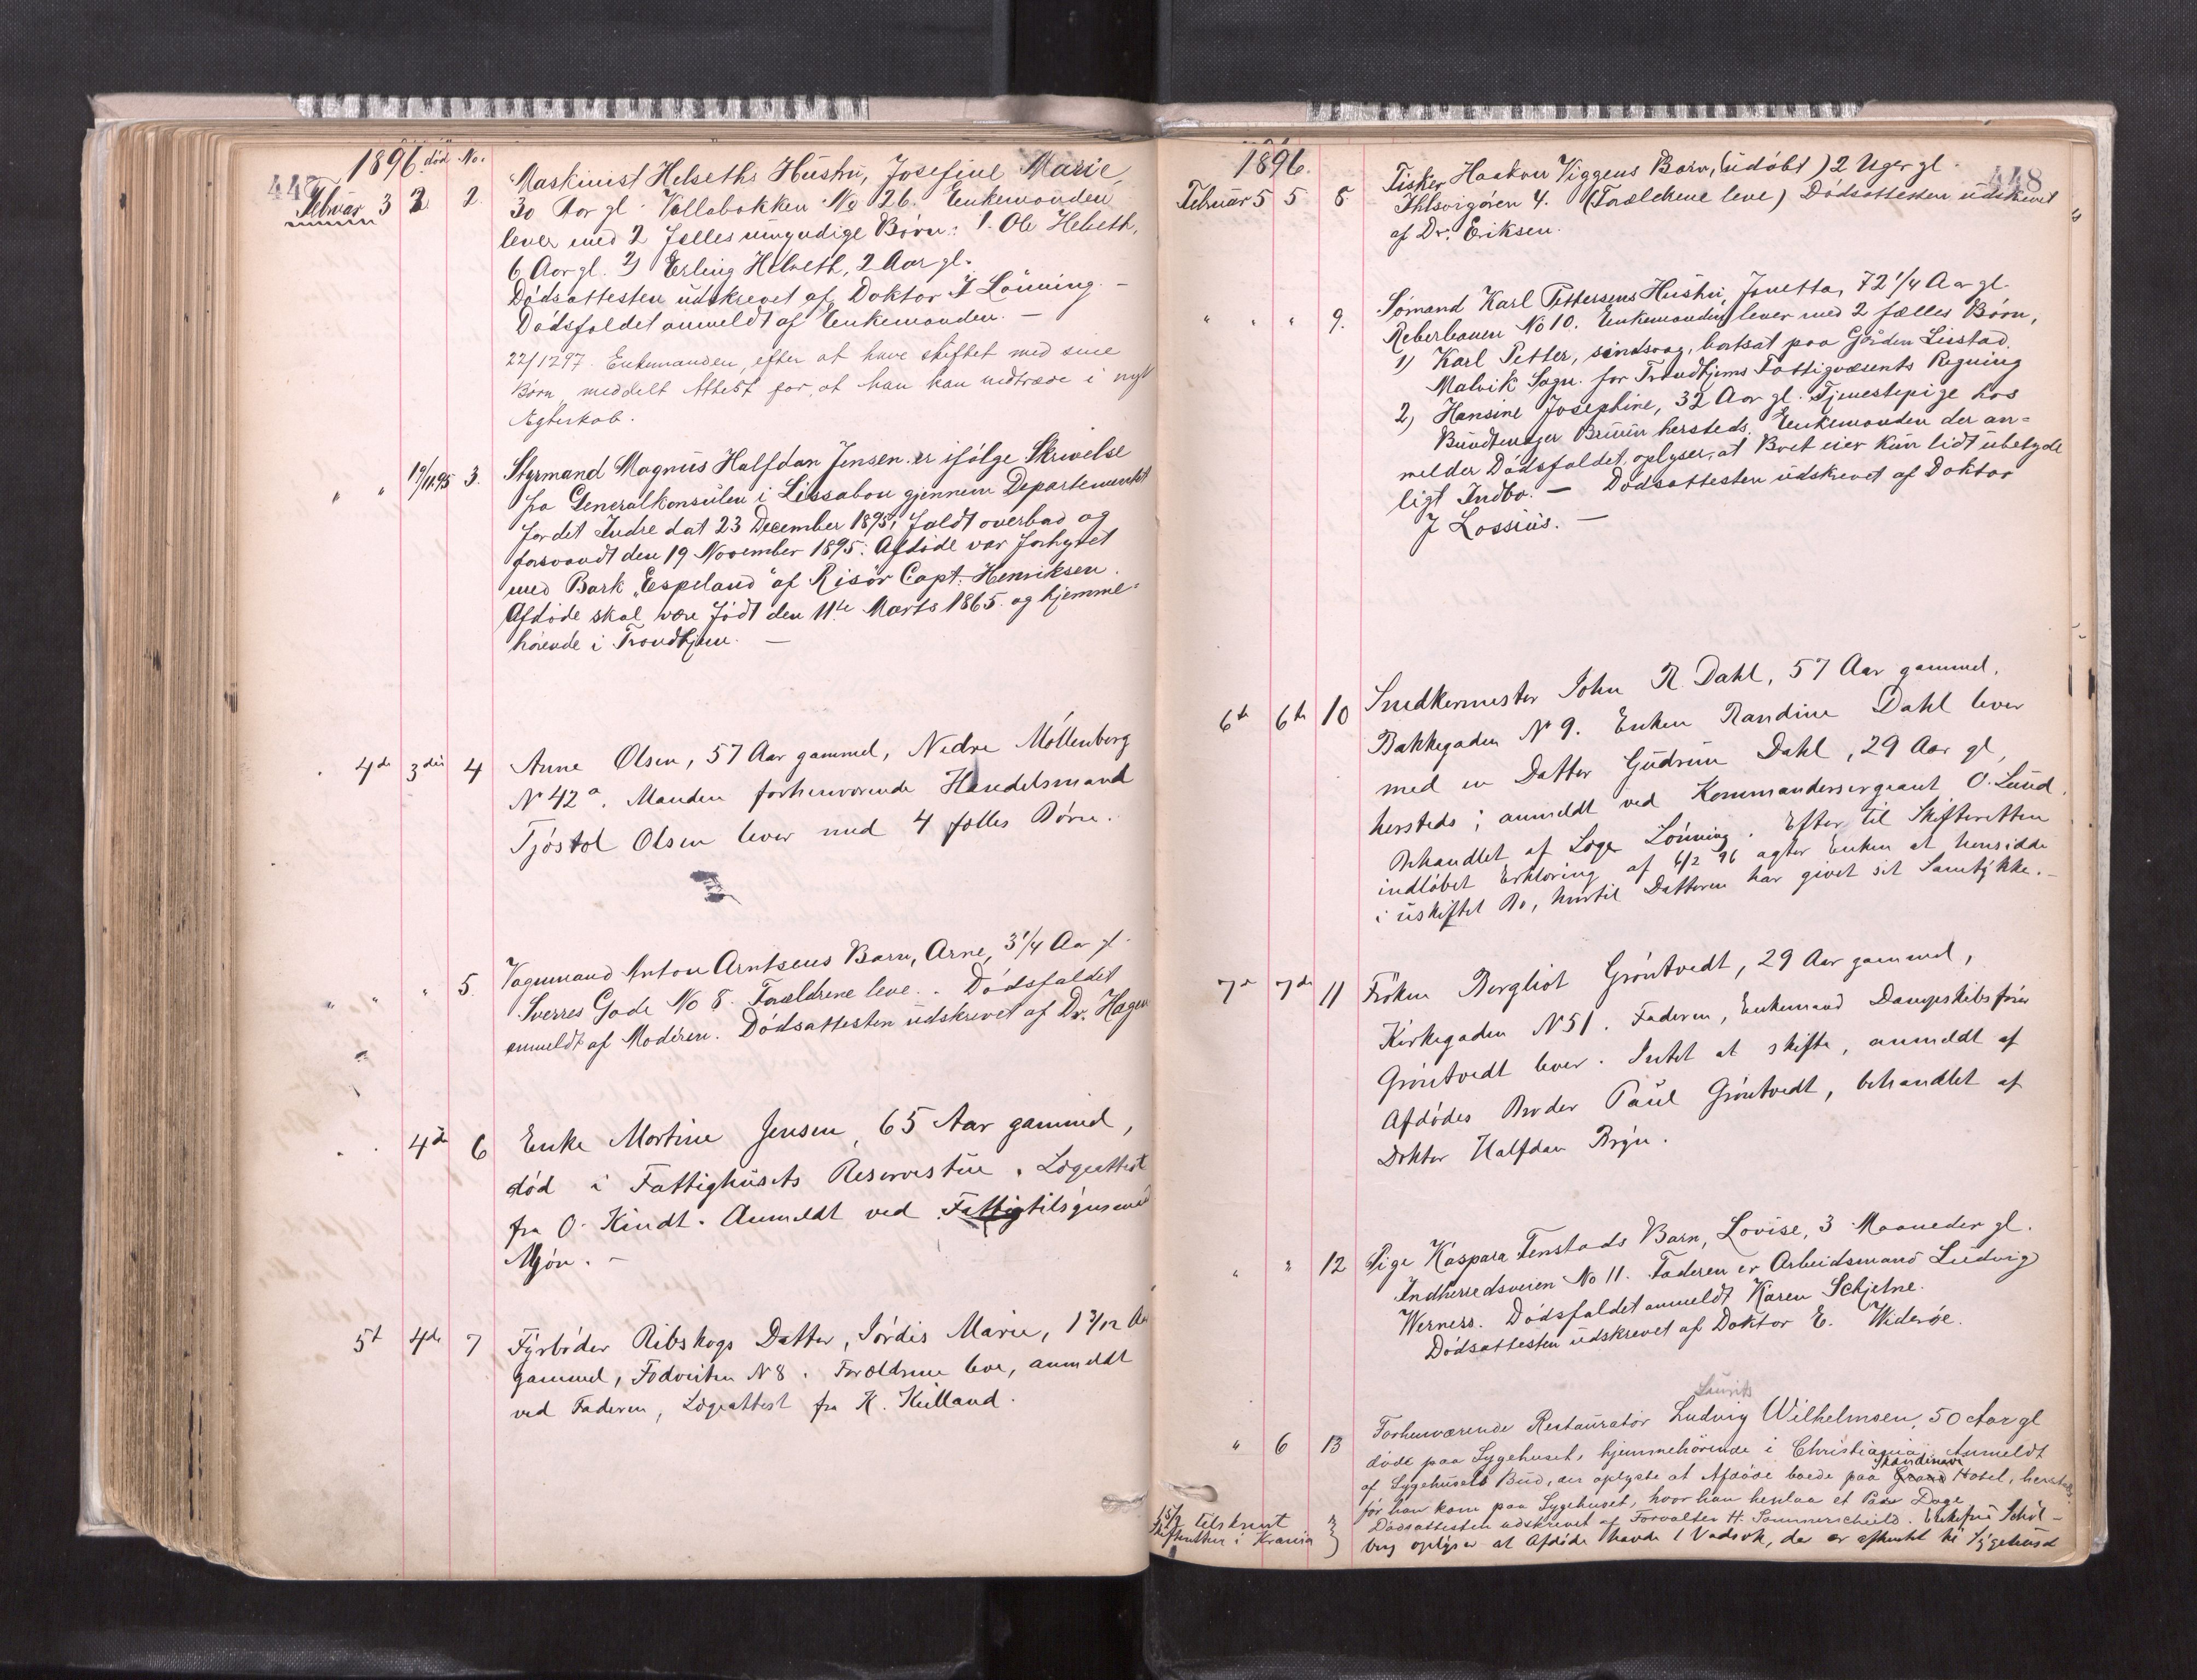 448
1896. död No.
Februar 3 2 2. Maskinist Helseths Hustru, Josefine Marie,
30 Aar gl. Vollabakken No 26. Enkemanden
lever med 2 fælles umyndige Børn: 1. Ole Helseth,
6 Aar gl. 2) Erling Helseth, 2 Aar gl.
Dödsattesten udskrevet af Doktor I Lönning. –
Dödsfaldet anmeldt af Enkemanden. –
22/12 97. Enkemanden, efter at have skiftet med sine
Børn, meddelt Attest for, at han kan indtræde i nyt
Ægteskab.
" " 19/11 95 3. Styrmand Magnus Halfdan Jensen er ifölge Skrivelse
fra Generalkonsulen i Lissabon gjennem Departementet
for det Indre dat 23 December 1895, faldt overbord og
forsvandt den 19 November 1895. Afdöde var forhyret
med Bark "Espeland" af Risör Capt. Henriksen.
Afdöde skal være födt den 11te Marts 1865 og hjemme-
hörende i Trondhjem. –
4de 3die 4 Anne Olsen, 57 Aar gammel, Nedre Möllenberg
No 42a. Manden forhenværende Handelsmand
Tjöstol Olsen lever med 4 fælles Börn.
" " " 5. Vognmand Anton Arntsens Barn, Arne, 3 1/4 Aar gl.
Sverres Gade No 8. Forældrene leve. Dödsfaldet
anmeldt af Moderen. Dödsattesten udskrevet af Dr. Hagen
" 4de 6 Enke Martine Jensen, 65 Aar gammel,
död i Fattighusets Reservestue. Lægeattest
fra O. Kindt. Anmeldt ved Fattigtilsynsmand
Mjön. –
5t 4de 7 Fyrböder Ribskogs Datter, Jördis Marie, 1 3/12 Aar
gammel, Fodveiten No 8. Forældrene leve, anmeldt
ved Faderen, Lægeattest fra K. Kielland.
448
1896.
Februar 5 5 8 Fisker Haakon Viggens Barn, (udöbt) 2 Uger gl.
Ihlsvigören 4. (Forældrene leve) Dödsattesten udskrevet
af Dr. Eriksen.
" " " 9. Sömand Karl Pettersens Hustru, Jonetta, 72 1/4 Aar gl.
Reberbanen No 10. Enkemanden lever med 2 fælles Börn,
1) Karl Petter, sindssvag, bortsat paa Gården Leistad
Malvik Sogn. for Trondhjems Fattigvæsents Regning
2) Hansine Josephine, 32 Aar gl. Tjenestepige hos
Bundtmager Bruun hersteds. Enkemanden der an-
melder Dödsfaldet, oplyser, at Boet eier kun lidt ubetyde
ligt Indbo. – Dödsattesten udskrevet af Doktor
J Lossius. –
6te 6te 10 Snedkermester John R. Dahl, 57 Aar gammel,
Bakkegaden No 9. Enken Randine Dahl lever
med en Datter Gudrun Dahl, 29 Aar gl,
hersteds; anmeldt ved Kommandersergeant O. Lund.
Behandlet af Læge Lönning. Efter til Skifteretten
indlöbet Erklæring af 6/2 96 agter Enken at hensidde
i uskiftet Bo, hvortil Datteren har givet sit Samtykke. –
7de 7de 11 Fröken Bergliot Gröntvedt, 29 Aar gammel,
Kirkegaden No 51. Faderen, Enkemand Dampskibsförer
Gröntvedt lever. Intet at skifte, anmeldt af
Afdödes Broder Paul Gröntvedt, behandlet af
Doktor Halfdan Bryn.
" " 12 Pige Kaspara Tenstads Barn, Lovise, 3 Maaneder gl.
Indherredsveien No 11. Faderen er Arbeidsmand Ludvig
Werness. Dödsfaldet anmeldt Karen Schjelne.
Dödsattesten udskrevet af Doktor E. Wideröe.
Laurits
" 6 13 Forhenværende Restauratör Ludvig Wilhelmsen, 50 Aar gl
döde paa Sygehuset, hjemmehörende i Christiania. Anmeldt
Skandinavi
af Sygehusets Bud, der oplyste at Afdöde boede paa Grand Hotel, hersteds,
för han kom paa Sygehuset, hvor han henlaa et Par Dage
Dödsattesten udskrevet af Forvalter H. Sommerscheild. Enkefru Schöl-
15/2 tilskrevet
Skifteretten i Krania
berg oplyser at Afdöde havde 1 Vadsæk, der er afhentet til Sygehuset